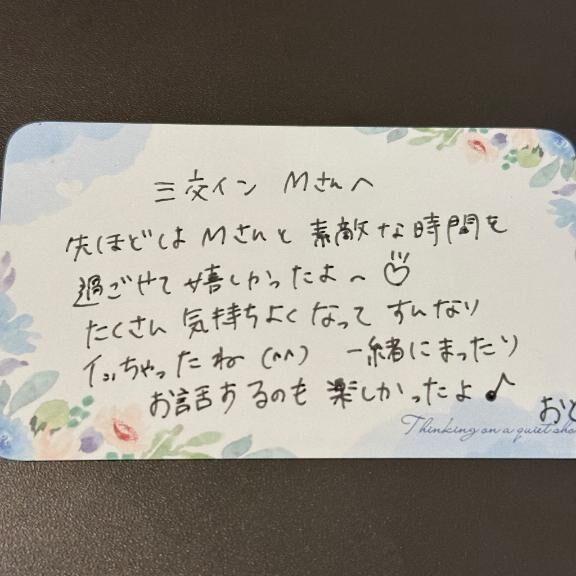 三交イン Mさんへ
先ほどはMさんと素敵な時間を
過ごせて嬉しかったよ〜♡
たくさん気持ちよくなってすんなり
イっちゃったね(^^) 一緒にまったり
お話するのも楽しかったよ♪
おと
Thinking on a quiet sho